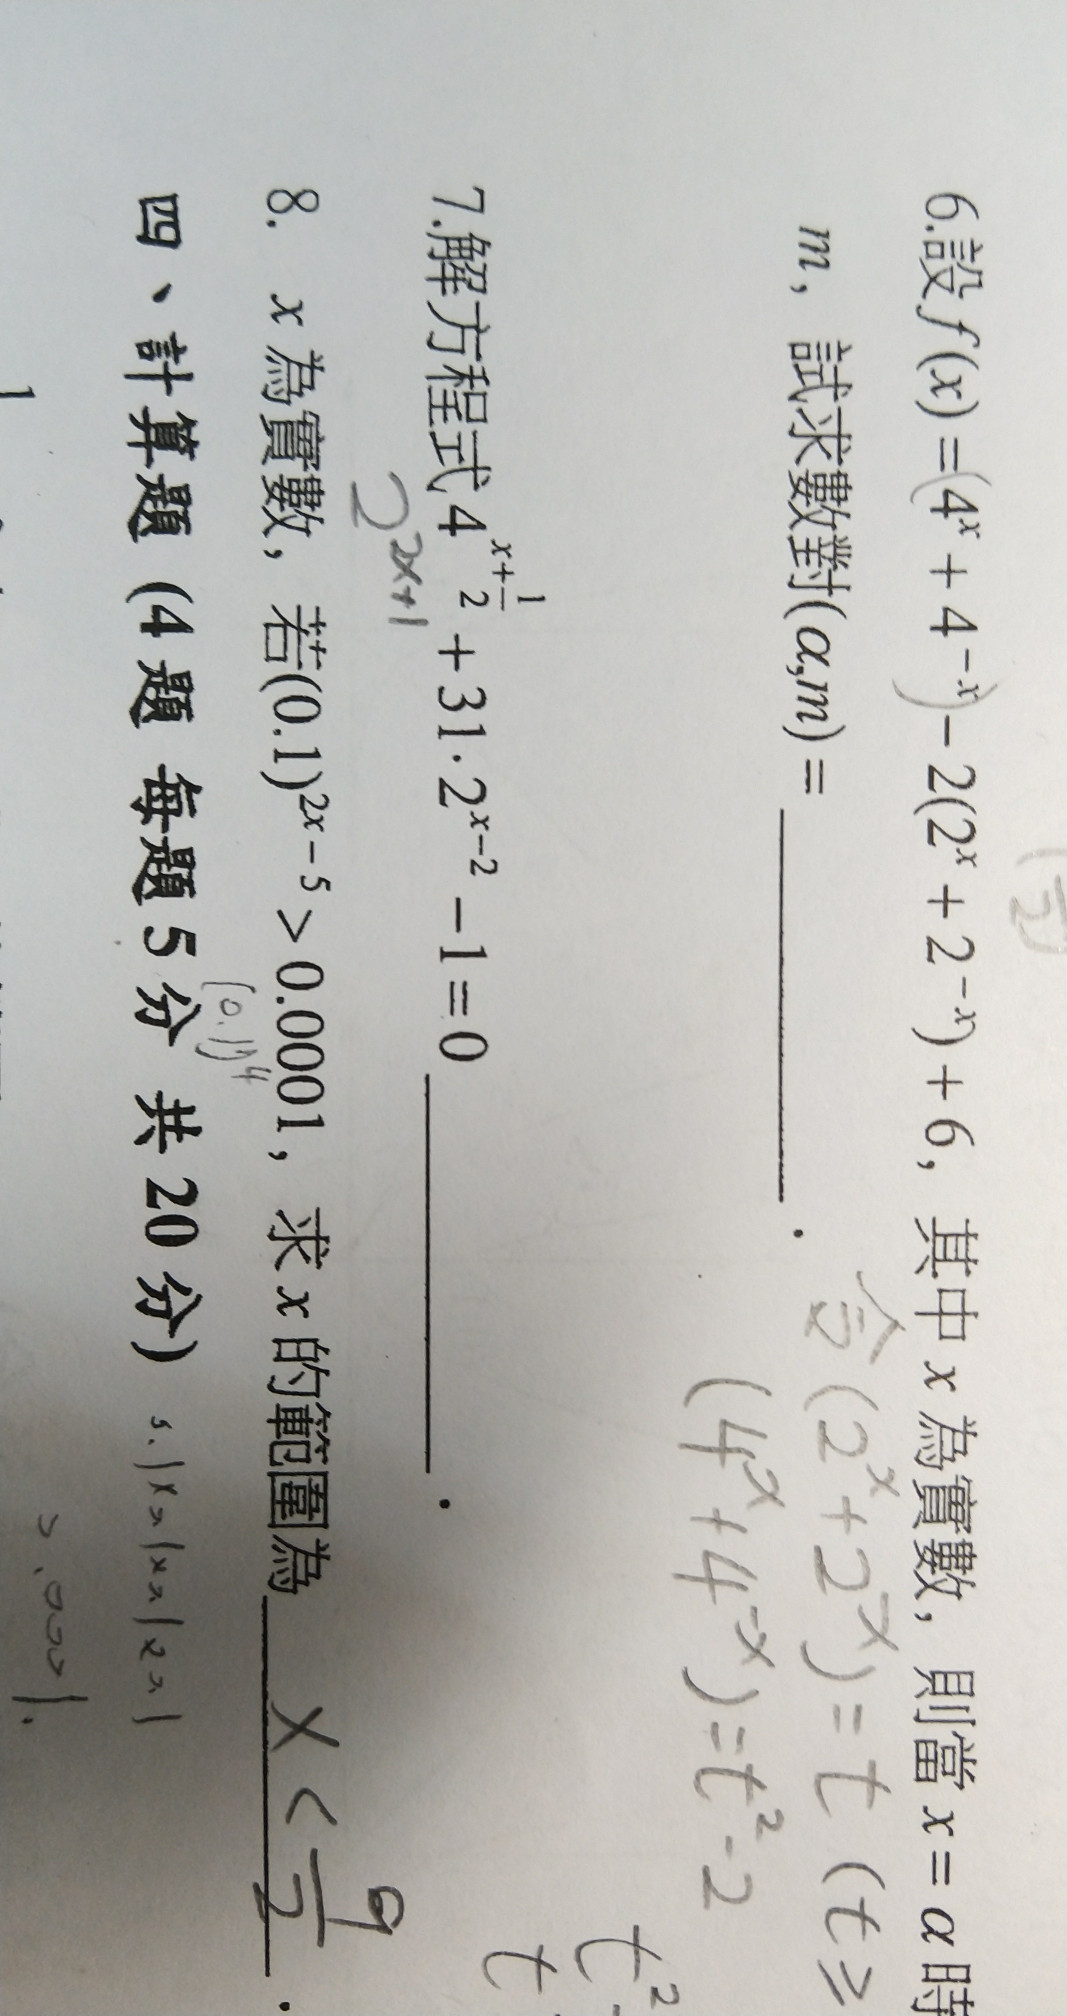 6.設 f(x) =(4^x + 4^{-x})- 2(2^x + 2^{-x}) + 6, 其中 x 為實數, 則當 x = α 時
m, 試求數對(α,m) = ________.
令 (2^x + 2^{-x}) = t (t ≥
(4^x + 4^{-x}) = t² - 2
t²
t
7.解方程式 4^{x+\frac{1}{2}} + 31·2^{x-2} - 1 = 0 ________.
2^{2x+1}
8. x 為實數, 若(0.1)^{2x-5} > 0.0001, 求 x 的範圍為 x < \frac{9}{2}.
(0.1)^4
四、計算題 (4 題 每題 5 分 共 20 分)